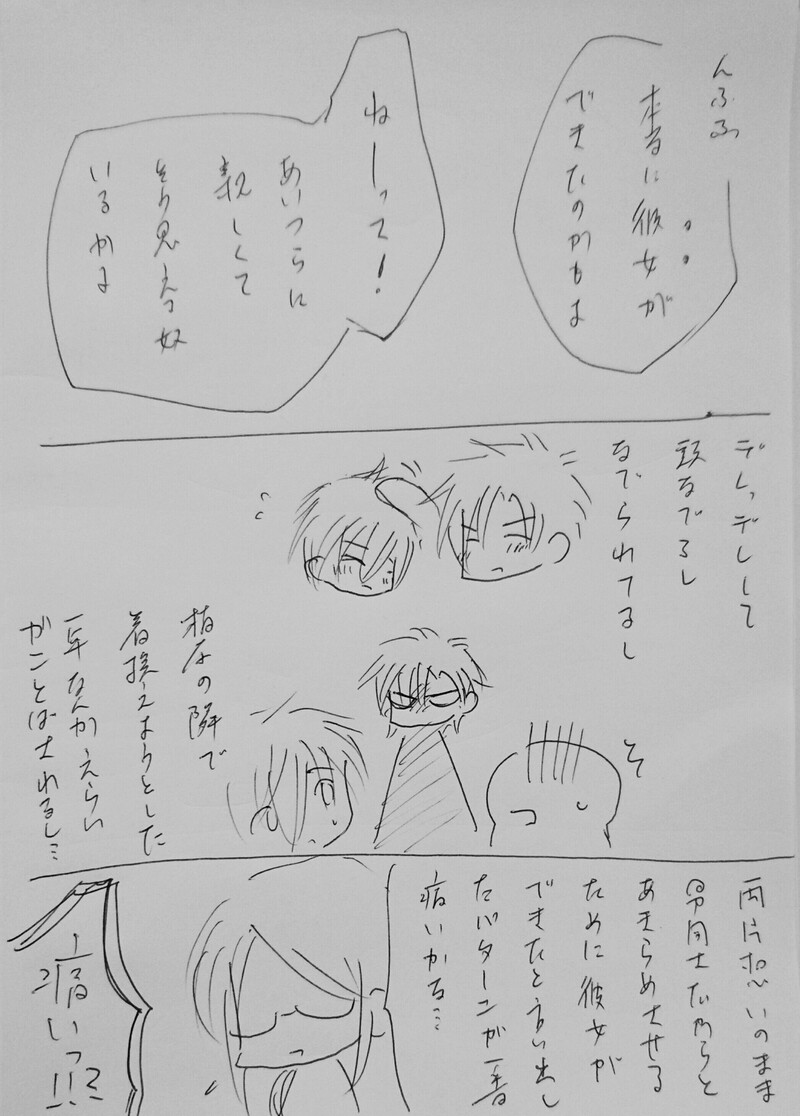 んふふ
本当に彼女が
できたのかもよ
ねーって!
あいつらに
親しくて
そう思える奴
いるかよ
デレッデレして
頭なでるし
なでられてるし
相方の隣で
着換えようとした
年なんかえらい
がことばされるし…
そ
両片想いのまま
男同士だからと
あきらめさせる
ために彼女が
できたと言い出し
たパターンが一番
痛いかな…
痛いっ!!?